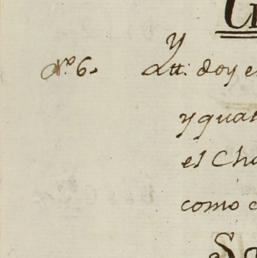 Nº. 6.
Y
Att. doy e
y quat
el Cha
como c